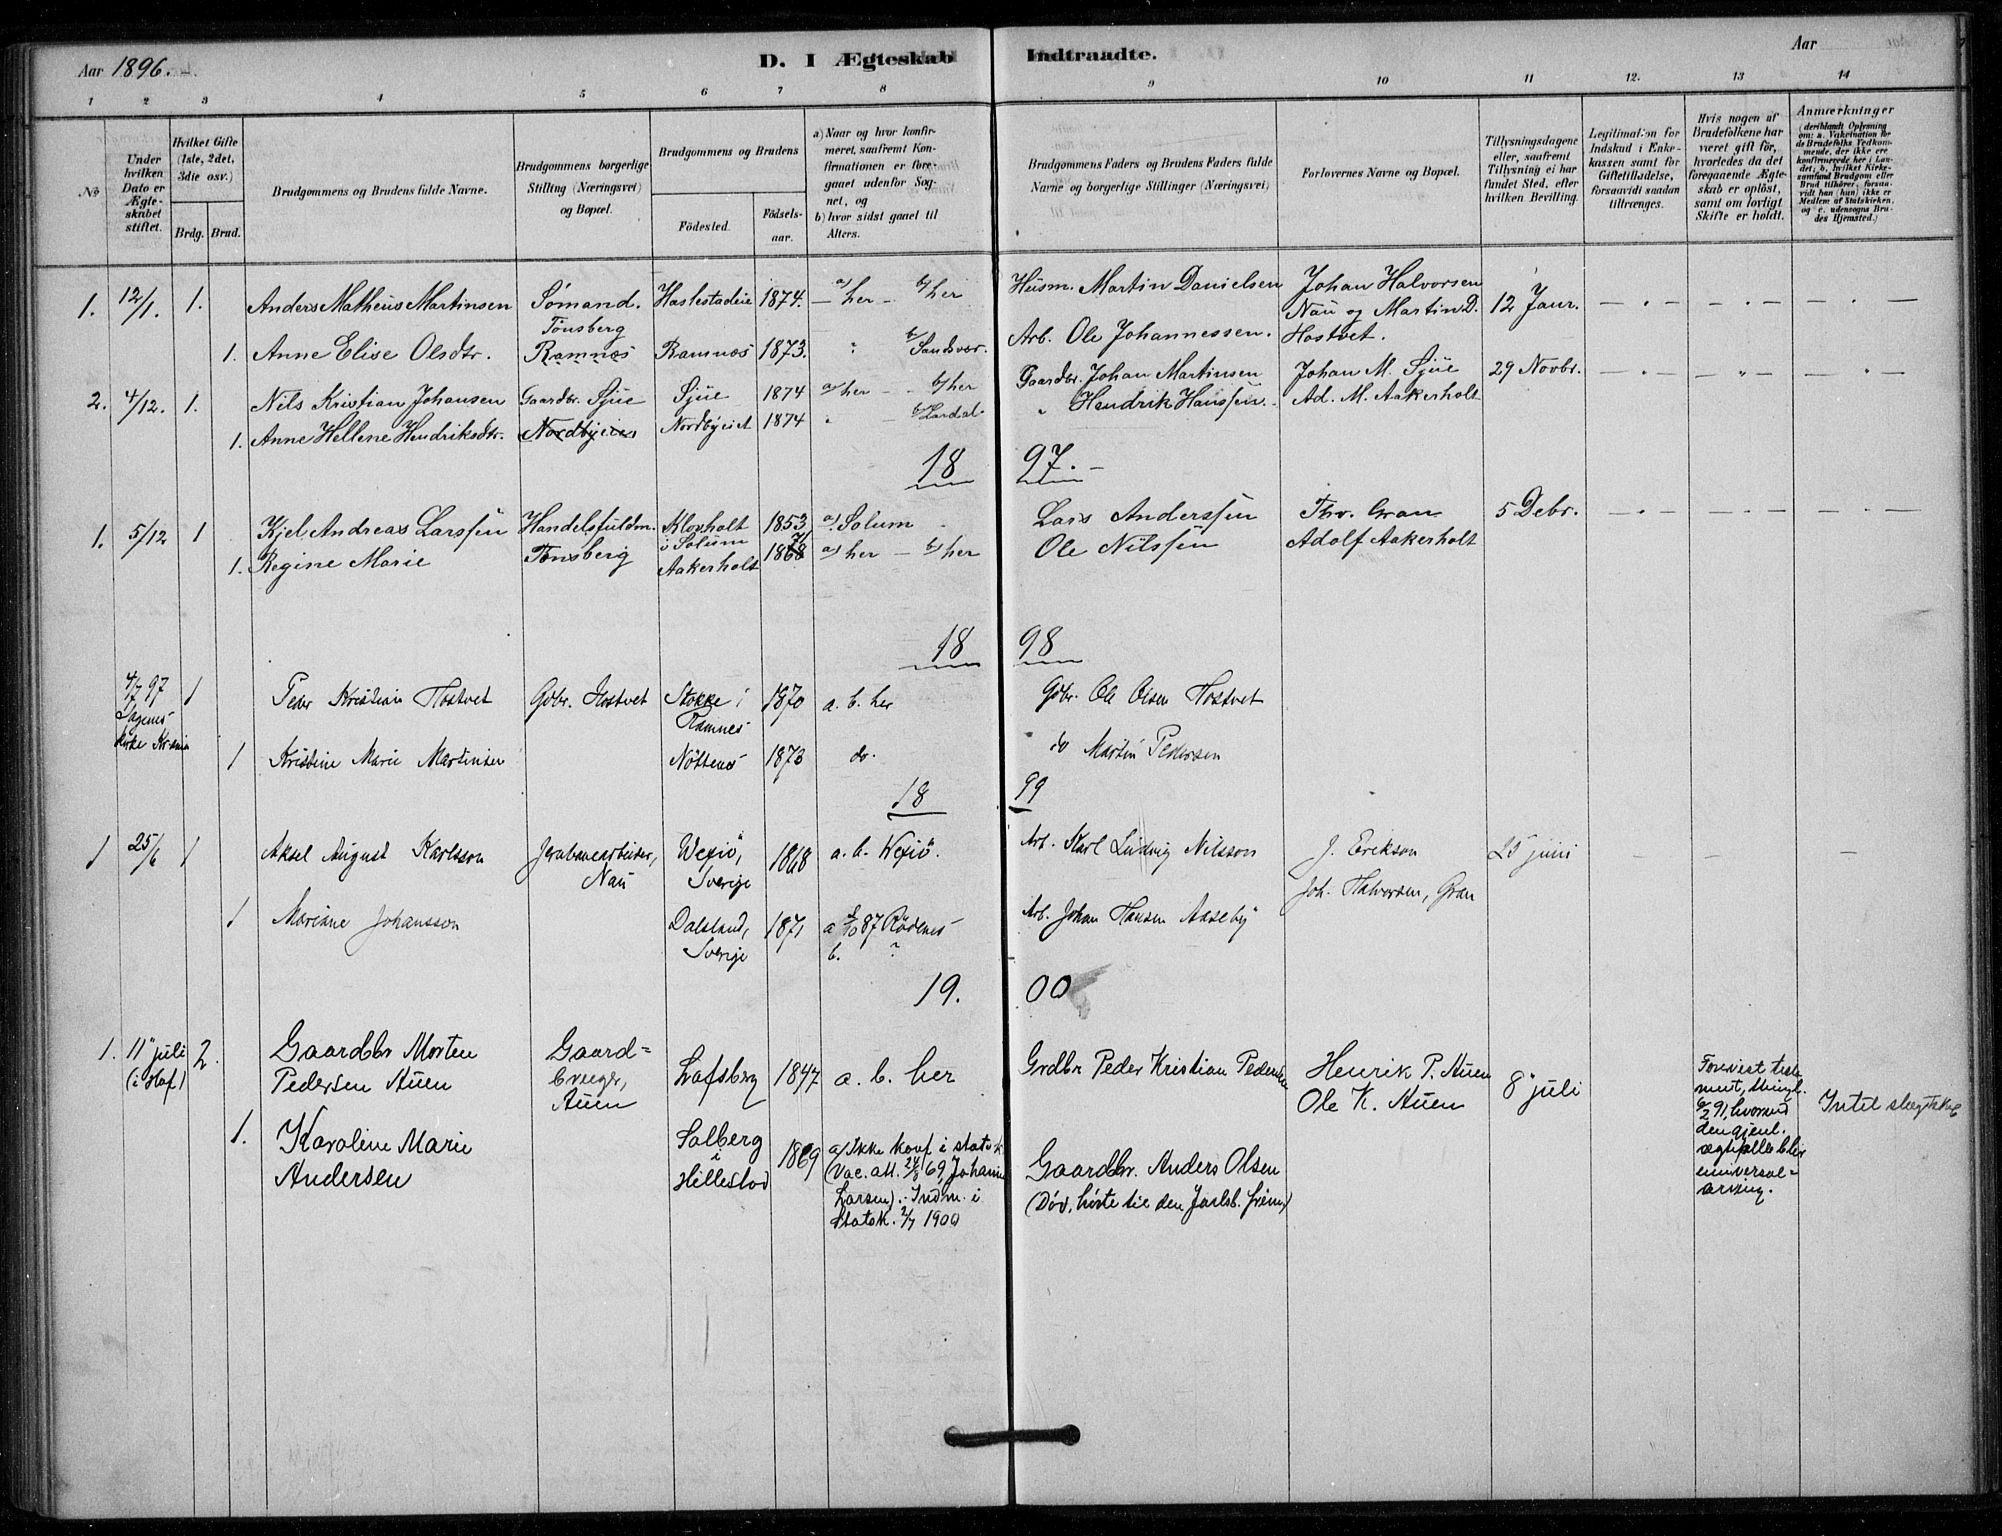 Aar 1896.
D. I Ægteskab Indtraadte.
Aar
1 2 3 4 5 6 7 8 9 10 11 12. 13 14
No
Under hvilken Dato er Ægteskabet stiftet.
Hvilket Gifte (1ste, 2det, 3die osv.)
Brdg. Brud.
Brudgommens og Brudens fulde Navne.
Brudgommens borgerlige Stilling (Næringsvei) og Bopæl.
Brudgommens og Brudens
Fødested.
Fødselsaar.
a) Naar og hvor konfirmeret, saafremt Konfirmationen er foregaaet udenfor Sognet, og
b) hvor sidst gaaet til Alters.
Brudgommens Faders og Brudens Faders fulde Navne og borgerlige Stillinger (Næringsvei)
Forlovernes Navne og Bopæl.
Tillysningsdagene eller, saafremt Tillysning ei har fundet Sted, efter hvilken Bevilling.
Legitimation for Indskud i Enkekassen samt for Giftetilladelse, forsaavidt saadan tiltrænges.
Hvis nogen af Brudefolkene har været gift før, hvorledes da det foregaaende Ægteskab er opløst, samt om lovligt Skifte er holdt.
Anmærkninger
(deriblandt Oplysning om: a. Vakcination for de Brudefolks Vedkommende, der ikke ere konfirmerede her i Landet; b. hvilket Kirkesamfund Brudgom eller Brud tilhører, forsaavidt han (hun) ikke er Medlem af Statskirken, og c. udensogns Brudes Hjemsted.)
1. 12/1. 1. Anders Matheus Martinsen Sømand. Haslestadeie 1874. a/ her – b/ her Husm. Martin Danielsen Johan Halvorsen
Tønsberg Nau og Martin D. 12 Janr.
1. Anne Elise Olsdtr. Ramnæs Ramnæs 1873. b/ Sandsvær. Arb. Ole Johannessen. Hostvet.
2. 4/12. 1. Nils Kristian Johansen Gaardbr. Sjue Sjue 1874 a/ her – b/ her Gaardbr. Johan Martinsen Johan M. Sjue 29 Novbr.
1. Anne Hellene Hendriksdtr. Nordbyeie Nordbyeiet 1874 " b/ Lardal. " Hendrik Hanssen. Ad. M. Aakerholt
1897.
1. 5/12 1 Kjel Andreas Larssen Handelsfuldm. Klovholt i Solum 1853 a/ Solum Lars Anderssen Thv. Gran 5 Debr.
1. Regine Marie Tønsberg Aakerholt 1868 71 a/ her – b/ her Ole Nilssen Adolf Aakerholt
1898
4/7 97 1 Peder Kristian Hostvet Gdbr. Hostvet Stokke i Ramnes 1870 a. b. her Gdbr. Ole Olsen Hostvet
kirke Kr.ania
1 Kristine Marie Martinsen Nøttenes 1873 do. do Martin Pedersen
1899
1 25/6 1 Aksel August Karlsson Jernbanearbeider, Nau Wexiö, Sverige 1868 a. b. Wexiö. Arb. Karl Ludvig Nilsson J. Erikson 25 juni
Joh. Halvorsen, Gran
1 Mariane Johansson Dalsland, Sverige 1871 a 2/10 87 Rödenes b. ? Arb. Johan Hansen Aaseby
19.00
1. 11" juli (i Hof) 2. Gaardbr Morten Pedersen Auen Gaardbruger, Auen Lofsberg 1847 a. b. her Grdbr Peder Kristian Pedersen Henrik P. Auen
Ole K. Auen 8" juli
Forevist testament, thingl. 6/2 91, hvorved den gjenl. ægtefælle blev universalarving.
Intet slægtskab
1. Karoline Marie Andersen Solberg i Hillestad 1869 a/ Ikke konf i statsk. (Vac. att. 24/8 69, Johannes Larsen). Indm. i Statsk. 2/7 1900 Gaardbr. Anders Olsen
(Død, hørte til den Jarlsb. frim.)